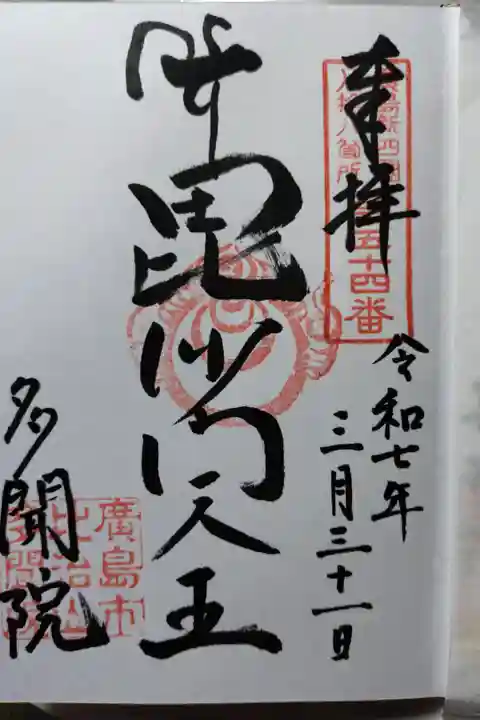 奉拝
廣島新四国
八拾八箇所
第五十四番
令和七年
三月三十一日
毘沙門天王
多聞院
廣島市
比治山
多聞院